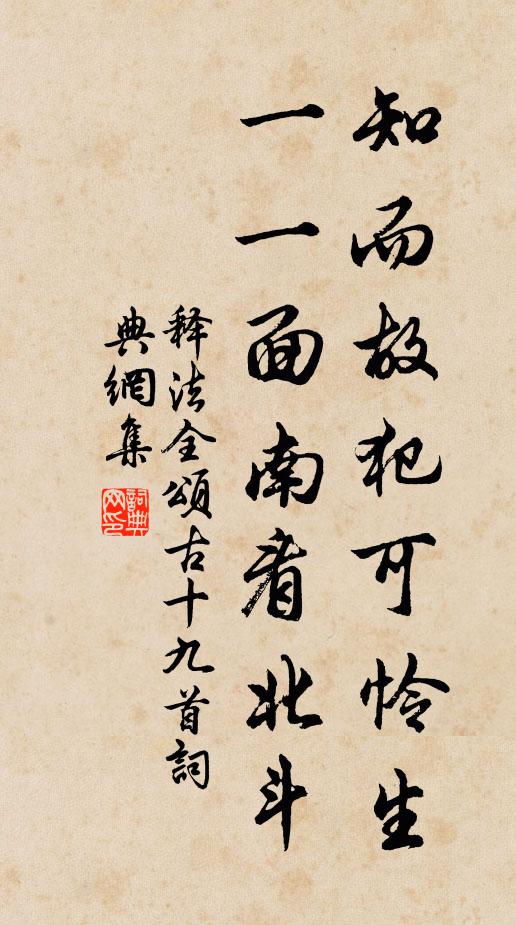 知而故犯可怜生
一一面南看北斗
释法全頌古十九首詞
典網集
詞典网印